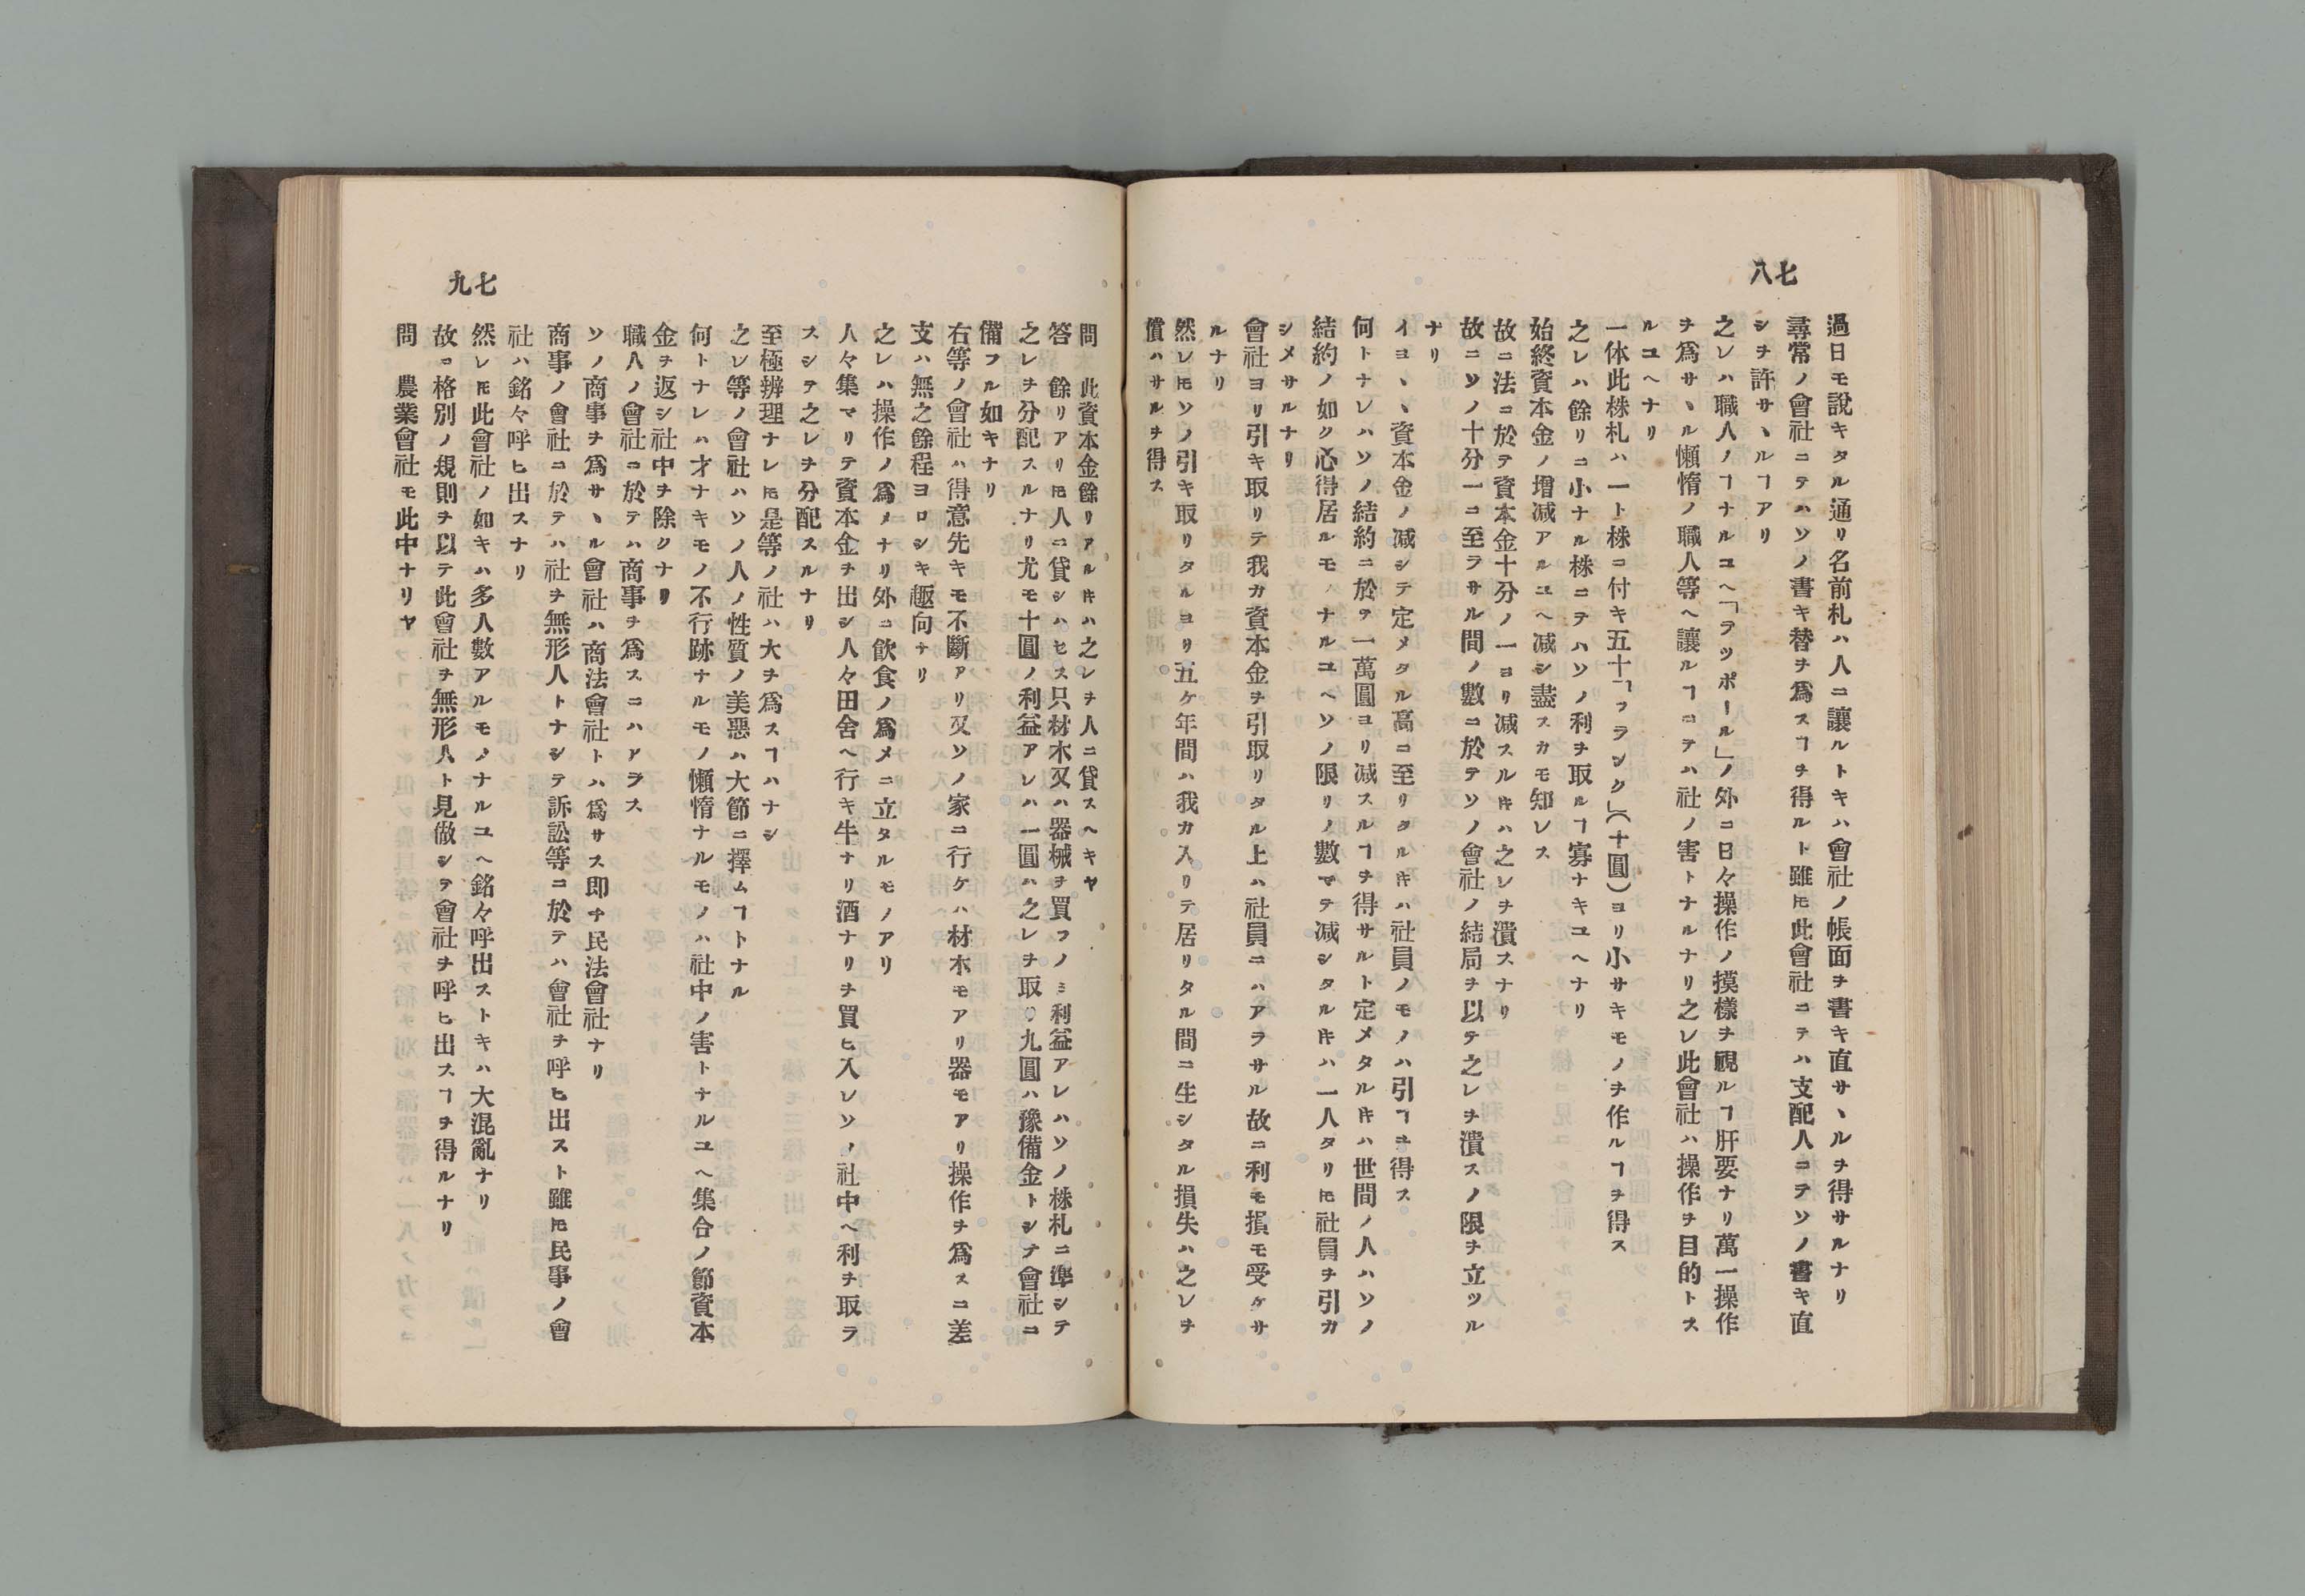 七八
過日モ說キタル通リ名前札ハ人ニ讓ルトキハ會社ノ帳面ヲ書キ直サヽルヲ得サルナリ
尋常ノ會社ニテハソノ書キ替ヲ爲スヿヲ得ルト雖𪜈此會社ニテハ支配人ニテソノ書キ直
シヲ許サヽルヿアリ
之レハ職人ノヿナルユヘ「ラツポール」ノ外ニ日々操作ノ摸樣ヲ視ルヿ肝要ナリ萬一操作
ヲ爲サヽル懶惰ノ職人等ヘ讓ルヿニテハ社ノ害トナルナリ之レ此會社ハ操作ヲ目的トス
ルユヘナリ
一体此株札ハ一ト株ニ付キ五十「フランク」(十圓)ヨリ小サキモノヲ作ルヿヲ得ス
之レハ餘リニ小ナル株ニテハソノ利ヲ取ルヿ寡ナキユヘナリ
始終資本金ノ增减アルユヘ减シ盡スカモ知レス
故ニ法ニ於テ資本金十分ノ一ヨリ减スルキハ之レヲ潰スナリ
故ニソノ十分一ニ至ラサル間ノ數ニ於テソノ會社ノ結局ヲ以テ之レヲ潰スノ限ヲ立ツル
ナリ
イヨヽヽ資本金ノ减シテ定メタル高ニ至リタルキハ社員ノモノハ引ヿヲ得ス
何トナレハソノ結約ニ於テ一萬圓ヨリ减スルヿヲ得サルト定メタルキハ世間ノ人ハソノ
結約ノ如ク心得居ルモノナルユヘソノ限リノ數マテ减シタルキハ一人タリ𪜈社員ヲ引カ
シメサルナリ
會社ヨリ引キ取リテ我カ資本金ヲ引取リタル上ハ社員ニハアラサル故ニ利モ損モ受ケサ
ルナリ
然レ𪜈ソノ引キ取リタルヨリ五ケ年間ハ我カ入リテ居リタル間ニ生シタル損失ハ之レヲ
償ハサルヲ得ス
七九
問　此資本金餘リアルキハ之レヲ人ニ貸スヘキヤ
答　餘リアリ𪜈人ニ貸シハセス只材木又ハ器械ヲ買フノミ利益アレハソノ株札ニ準シテ
之レヲ分配スルナリ尤モ十圓ノ利益アレハ一圓ハ之レヲ取リ九圓ハ豫備金トシテ會社ニ
備フル如キナリ
右等ノ會社ハ得意先キモ不斷アリ又ソノ家ニ行ケハ材木モアリ器モアリ操作ヲ爲スニ差
支ハ無之餘程ヨロシキ趣向ナリ
之レハ操作ノ爲メナリ外ニ飮食ノ爲メニ立タルモノアリ
人々集マリテ資本金ヲ出シ人々田舍ヘ行キ牛ナリ酒ナリヲ買ヒ入レソノ社中ヘ利ヲ取ラ
スシテ之レヲ分配スルナリ
至極辨理ナレ𪜈是等ノ社ハ大ヲ爲スヿハナシ
之レ等ノ會社ハソノ人ノ性質ノ美惡ハ大節ニ擇ムヿトナル
何トナレハ才ナキモノ不行跡ナルモノ懶惰ナルモノハ社中ノ害トナルユヘ集合ノ節資本
金ヲ返シ社中ヲ除クナリ
職人ノ會社ニ於テハ商事ヲ爲スニハアラス
ソノ商事ヲ爲サヽル會社ハ商法會社トハ爲サス即チ民法會社ナリ
商事ノ會社ニ於テハ社ヲ無形人トナシテ訴訟等ニ於テハ會社ヲ呼ヒ出スト雖𪜈民事ノ會
社ハ銘々呼ヒ出スナリ
然レ𪜈此會社ノ如キハ多人數アルモノナルユヘ銘々呼出ストキハ大混亂ナリ
故ニ格別ノ規則ヲ以テ此會社ヲ無形人ト見做シテ會社ヲ呼ヒ出スヿヲ得ルナリ
問　農業會社モ此中ナリヤ